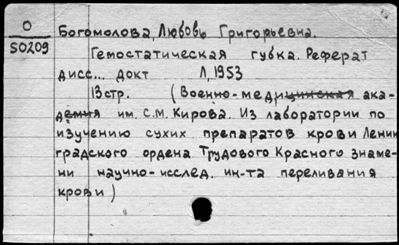 О
50209
Богомолова, Любовь Григорьевна.
Гемостатическая губка. Реферат
дисс... докт Л, 1953
13стр. (Военно-медицинская ака-
демия им. С.М. Кирова. Из лаборатории по
изучению сухих препаратов крови Ленин
градского ордена Трудового Красного знаме-
ни научно-исслед. ин-та переливания
крови)